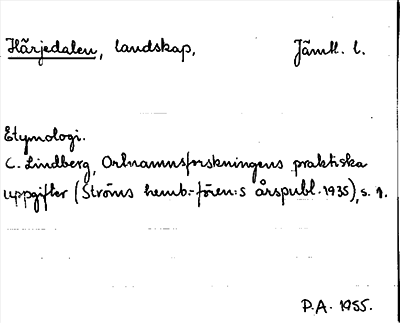 Härjedalen, landskap, Jämtl. l.
Etymologi.
C. Lindberg, Ortnamnsforskningens praktiska
uppgifter (Ströms hemb.-fören:s årspubl. 1935), s. 9.
P.A. 1955.